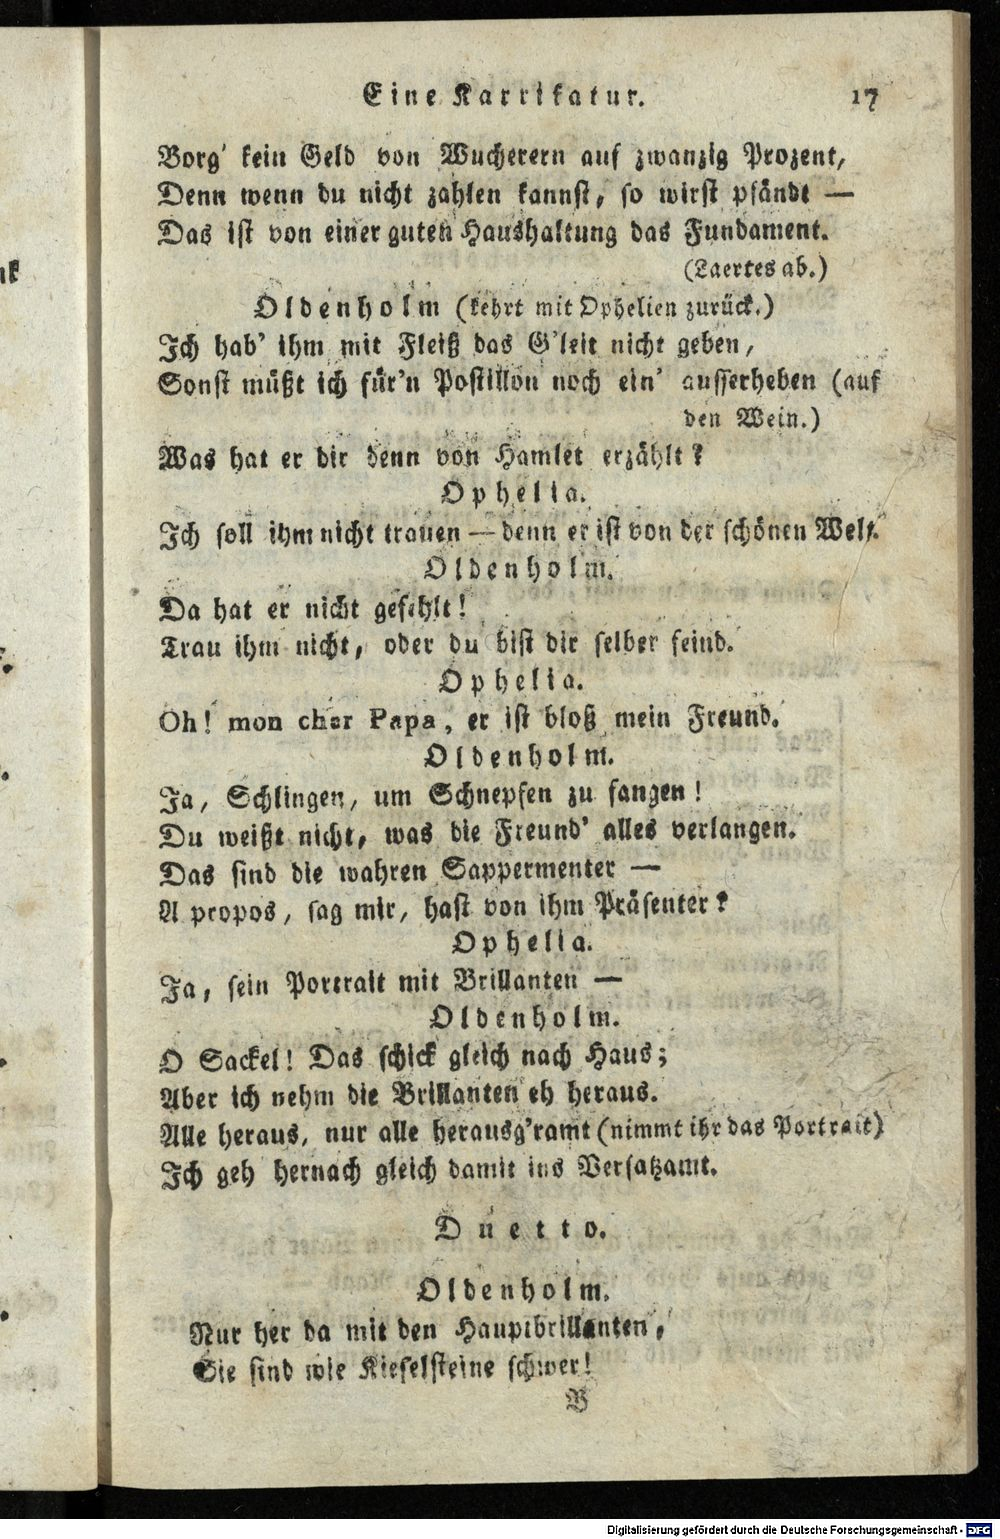 Eine Karrikatur. 17
Borg' kein Geld von Wucherern auf zwanzig Prozent,
Denn wenn du nicht zahlen kannst, so wirst pfändt —
Das ist von einer guten Haushaltung das Fundament.
(Laertes ab.)
Oldenholm (kehrt mit Ophelien zurück.)
Ich hab' ihm mit Fleiß das G'leit nicht geben,
Sonst müßt ich für'n Postillon noch ein' ausserheben (auf
den Wein.)
Was hat er dir denn von Hamlet erzählt?
Ophelia.
Ich soll ihm nicht trauen — denn er ist von der schönen Welt.
Oldenholm.
Da hat er nicht gefehlt!
Trau ihm nicht, oder du bist dir selber feind.
Ophelia.
Oh! mon cher Papa, er ist bloß mein Freund.
Oldenholm.
Ja, Schlingen, um Schnepfen zu fangen!
Du weißt nicht, was die Freund' alles verlangen.
Das sind die wahren Sappermenter —
A propos, sag mir, hast von ihm Präsenter?
Ophelia.
Ja, sein Portrait mit Brillanten —
Oldenholm.
O Sackel! Das schick gleich nach Haus;
Aber ich nehm die Brillanten eh heraus.
Alle heraus, nur alle herausg'ramt (nimmt ihr das Portrait)
Ich geh hernach gleich damit ins Versatzamt.
Duetto.
Oldenholm.
Nur her da mit den Hauptbrillanten,
Sie sind wie Kieselsteine schwer!
B
Digitalisierung gefördert durch die Deutsche Forschungsgemeinschaft - DFG